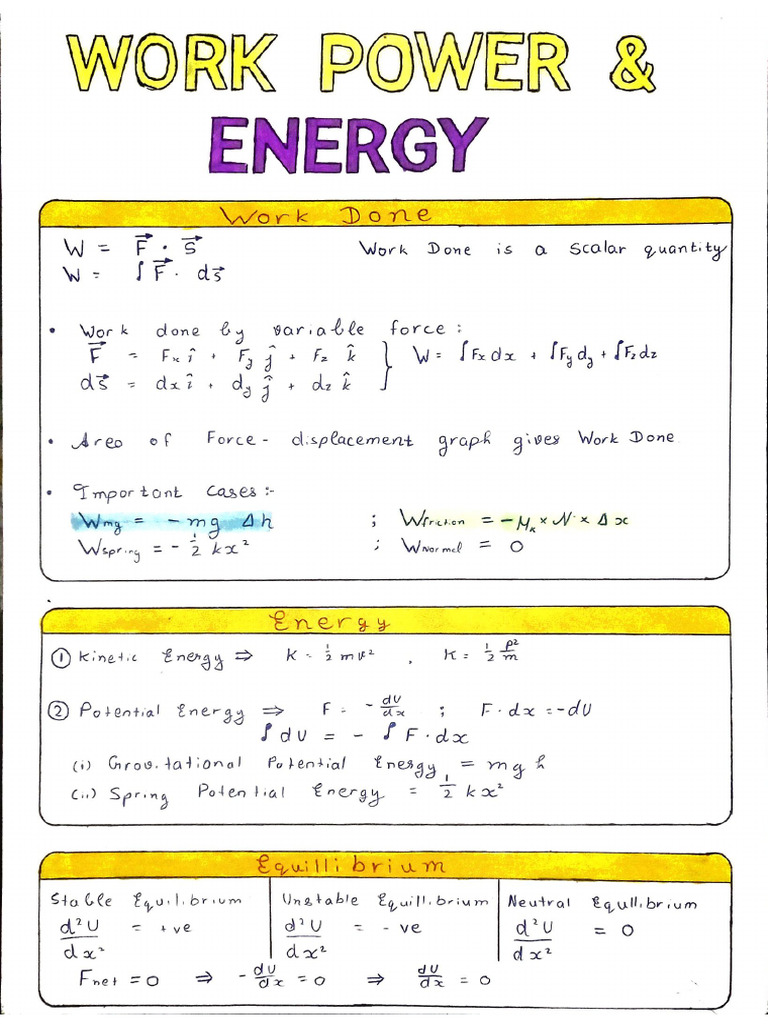 WORK POWER &
ENERGY
Work Done
W = F⃗ · S⃗ Work Done is a scalar quantity
W = ∫F⃗ · ds⃗
• Work done by variable force:
F⃗ = Fx î + Fy ĵ + Fz k̂ } W = ∫Fxdx + ∫Fydy + ∫Fzdz
ds⃗ = dx î + dy ĵ + dz k̂
• Area of Force - displacement graph gives Work Done
• Important cases:-
Wmg = - mg Δh ; Wfriction = - μk × N × Δx
Wspring = - 1/2 kx² ; WNormal = 0
Energy
① Kinetic Energy ⇒ K = 1/2 mv² , K = 1/2 p²/m
② Potential Energy ⇒ F = - dU/dx ; F · dx = -dU
∫dU = - ∫F · dx
(i) Gravitational Potential Energy = mgh
(ii) Spring Potential Energy = 1/2 kx²
Equillibrium
Stable Equilibrium Unstable Equillibrium Neutral Equllibrium
d²U/dx² = +ve d²U/dx² = - ve d²U/dx² = 0
Fnet = 0 ⇒ - dU/dx = 0 ⇒ dU/dx = 0